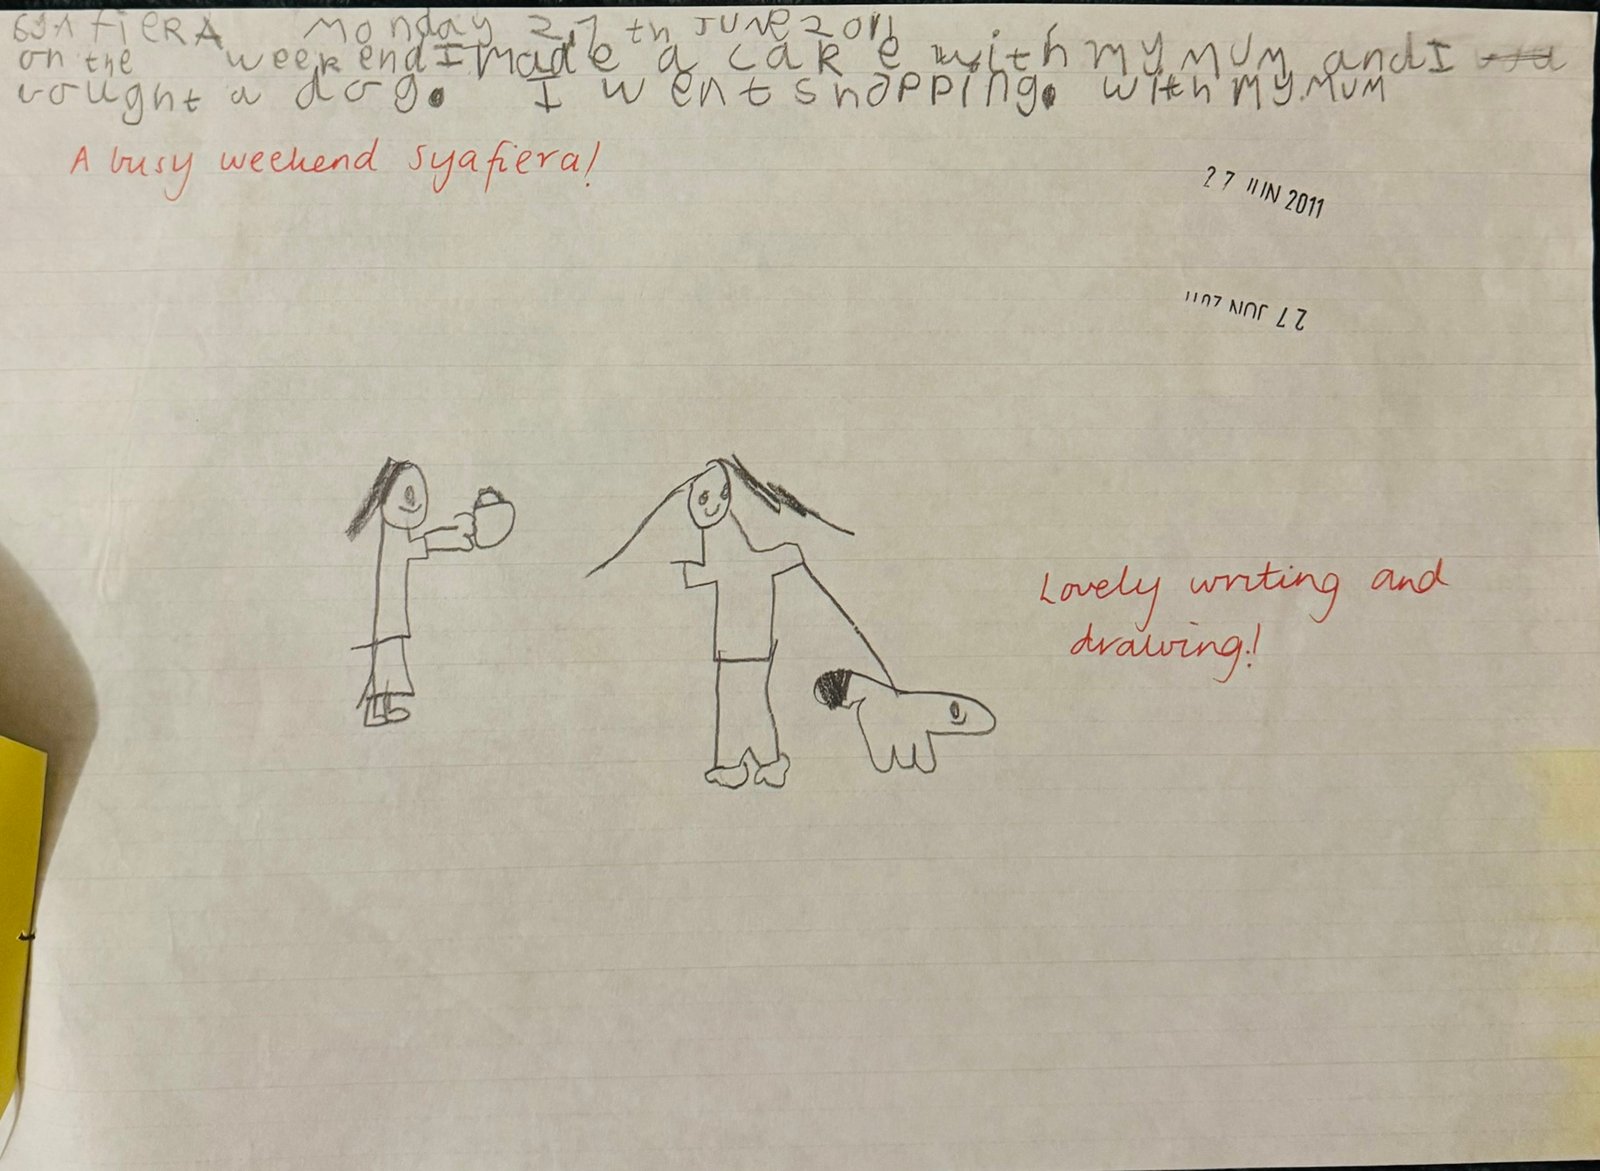 SYAfiERA Monday 27th JUNE 2011
on the weekend I made a cake with my mum and I
vought a dog. I went shopping. with my mum
A busy weekend Syafiera!
27 JUN 2011
27 JUN 2011
Lovely writing and
drawing!